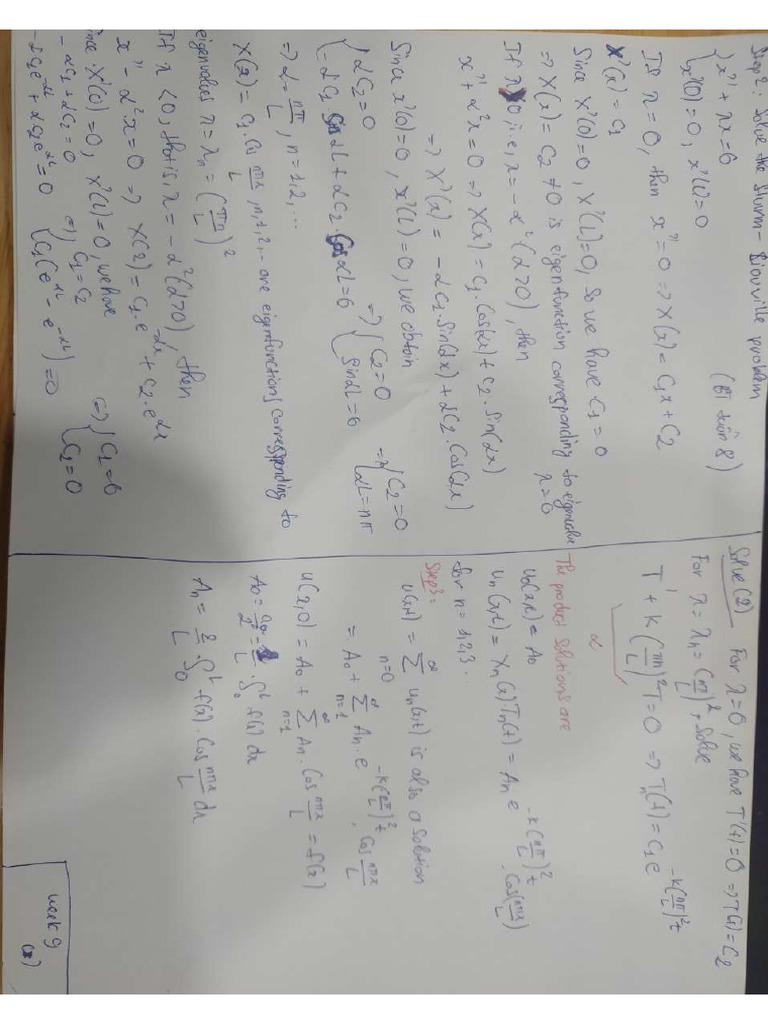 Step 2: Solve the Sturm-Liouville problem
{ x'' + λx = 0
x'(0) = 0, x'(L) = 0
If λ = 0, then x'' = 0 => X(x) = C1x + C2
X'(x) = C1
Since X'(0) = 0, X'(L) = 0, so we have C1 = 0
=> X(x) = C2 ≠ 0 is eigenfunction corresponding to eigenvalue λ = 0
If λ > 0, i.e, λ = -α² (α > 0), then
x'' + α²x = 0 => X(x) = C1.Cos(αx) + C2.Sin(αx)
=> X'(x) = -αC1.Sin(αx) + αC2.Cos(αx)
Since x'(0) = 0, x'(L) = 0, we obtain
{ αC2 = 0
-αC1 Sin αL + αC2.Cos αL = 0 => { C2 = 0
Sin αL = 0 => { C2 = 0
αL = nπ
=> α = nπ/L, n = 1,2,...
X(x) = C1.Cos nπx/L, n=1,2,... are eigenfunctions corresponding to
eigenvalues λ = λn = (πn/L)²
If λ < 0, that is, λ = -α² (α > 0), then
x'' - α²x = 0 => X(x) = C1.e^-αx + C2.e^αx
Since X'(0) = 0, X'(L) = 0, we have
-αC1 + αC2 = 0 => { C1 = C2
-αC1e^-αL + αC2e^αL = 0 C1(e^αL - e^-αL) = 0 => { C2 = 0
C1 = 0
Solve (2) For λ = 0, we have T'(t) = 0 => T(t) = C2
For λ = λn = (nπ/L)², solve
T' + k(πn/L)²T = 0 => Tn(t) = C1 e^-k(nπ/L)²t
The product solutions are
u0(x,t) = A0
un(x,t) = Xn(x)Tn(t) = An e^-k(nπ/L)²t . Cos(nπx/L)
for n = 1,2,3.
Step 3:
u(x,t) = ∑ n=0 ∞ un(x,t) is also a solution
= A0 + ∑ n=1 ∞ An.e^-k(nπ/L)²t . Cos nπx/L
u(x,0) = A0 + ∑ n=1 ∞ An.Cos nπx/L = f(x)
A0 = a0/2 = 1/L . ∫0^L f(x) dx
An = 2/L . ∫0^L f(x).Cos nπx/L dx
week 9